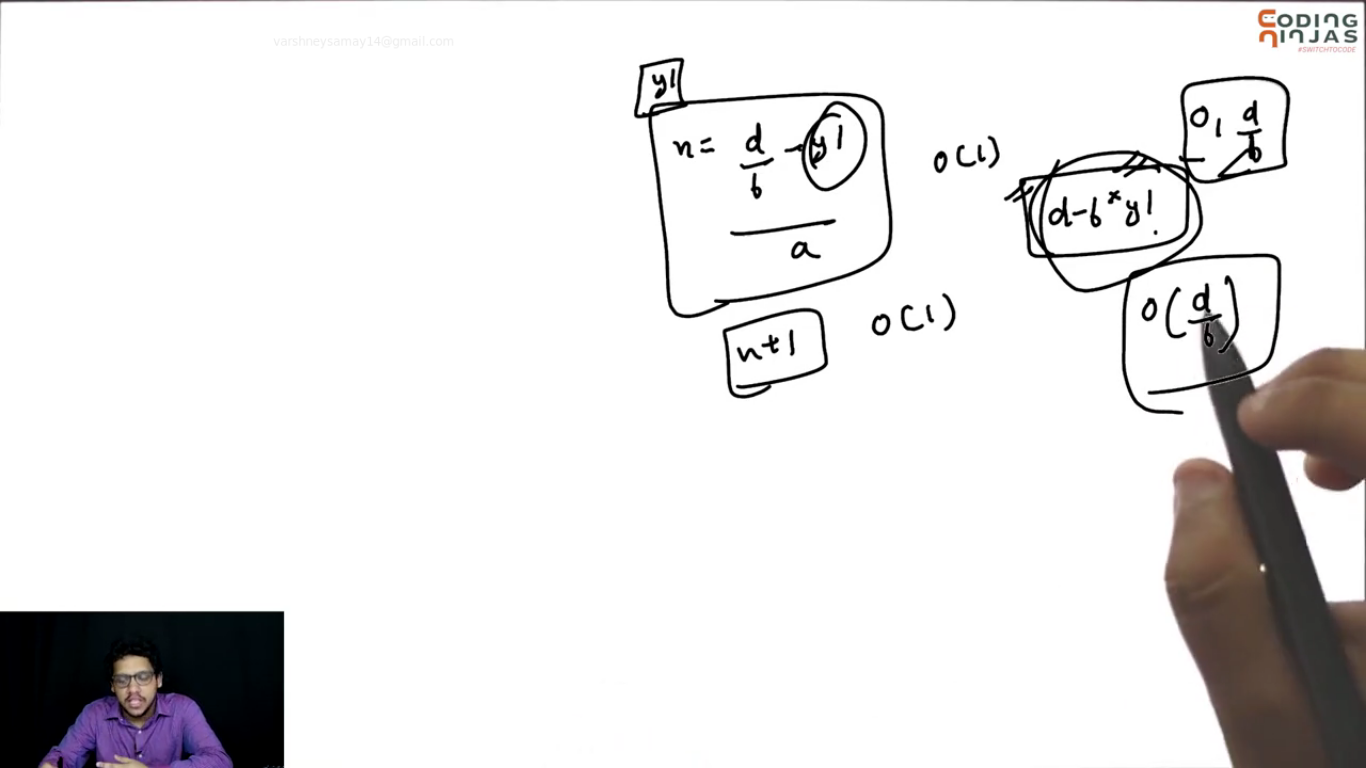 varshneysamay14@gmail.com
CODING
NINJAS
#SWITCHTOCODE
y1
n = d/b - y1
a
O(1)
0, d/b
d-b*y1
O(d/b)
n+1
O(1)